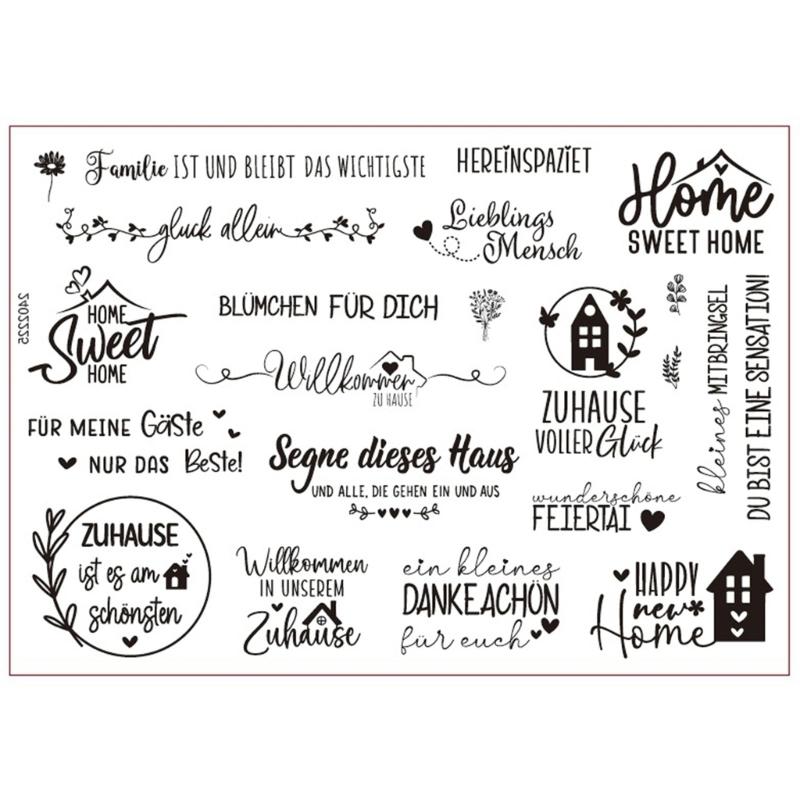 Familie IST UND BLEIBT DAS WICHTIGSTE
HEREINSPAZIET
Home
SWEET HOME
gluck allein
Lieblings
Mensch
2402225
HOME
Sweet
HOME
BLÜMCHEN FÜR DICH
Willkommen
ZU HAUSE
ZUHAUSE
VOLLER Glück
kleines MITBRINGSEL
DU BIST EINE SENSATION!
FÜR MEINE Gäste
NUR DAS Beste!
Segne dieses Haus
UND ALLE, DIE GEHEN EIN UND AUS
wunderschöne
FEIERTAI
ZUHAUSE
ist es am
schönsten
Willkommen
IN UNSEREM
Zuhause
ein kleines
DANKEACHÖN
für euch
HAPPY
new
Home